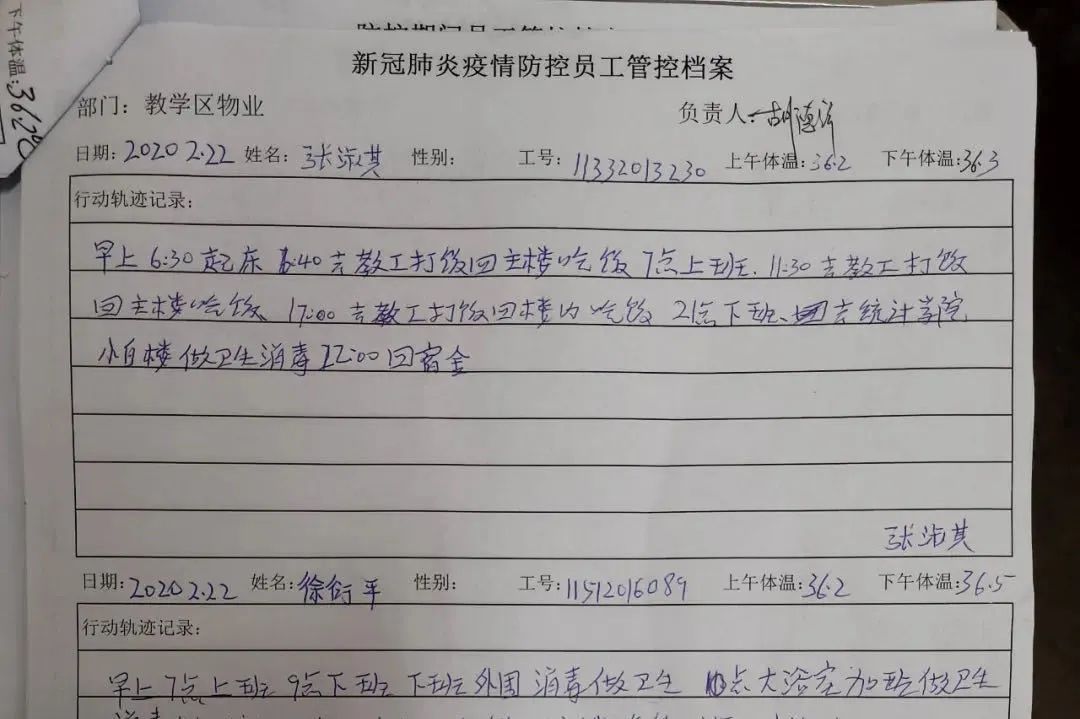 下午体温:36.2℃
新冠肺炎疫情防控员工管控档案
部门: 教学区物业 负责人:
日期: 2020 2.22 姓名: 张淑其 性别: 工号: 11332013230 上午体温: 36.2 下午体温: 36.3
行动轨迹记录:
早上6:30起床 6:40去教工打饭回主楼吃饭 7点上班、11:30去教工打饭
回主楼吃饭 17:00去教工打饭回楼内吃饭 21点下班、去统计学院
小白楼做卫生消毒 22:00回宿舍
张淑其
日期: 2020 2.22 姓名: 徐衍平 性别: 工号: 11512016089 上午体温: 36.2 下午体温: 36.5
行动轨迹记录:
早上7点上班 9点下班 下班外围消毒做卫生 10点大浴室加班做卫生